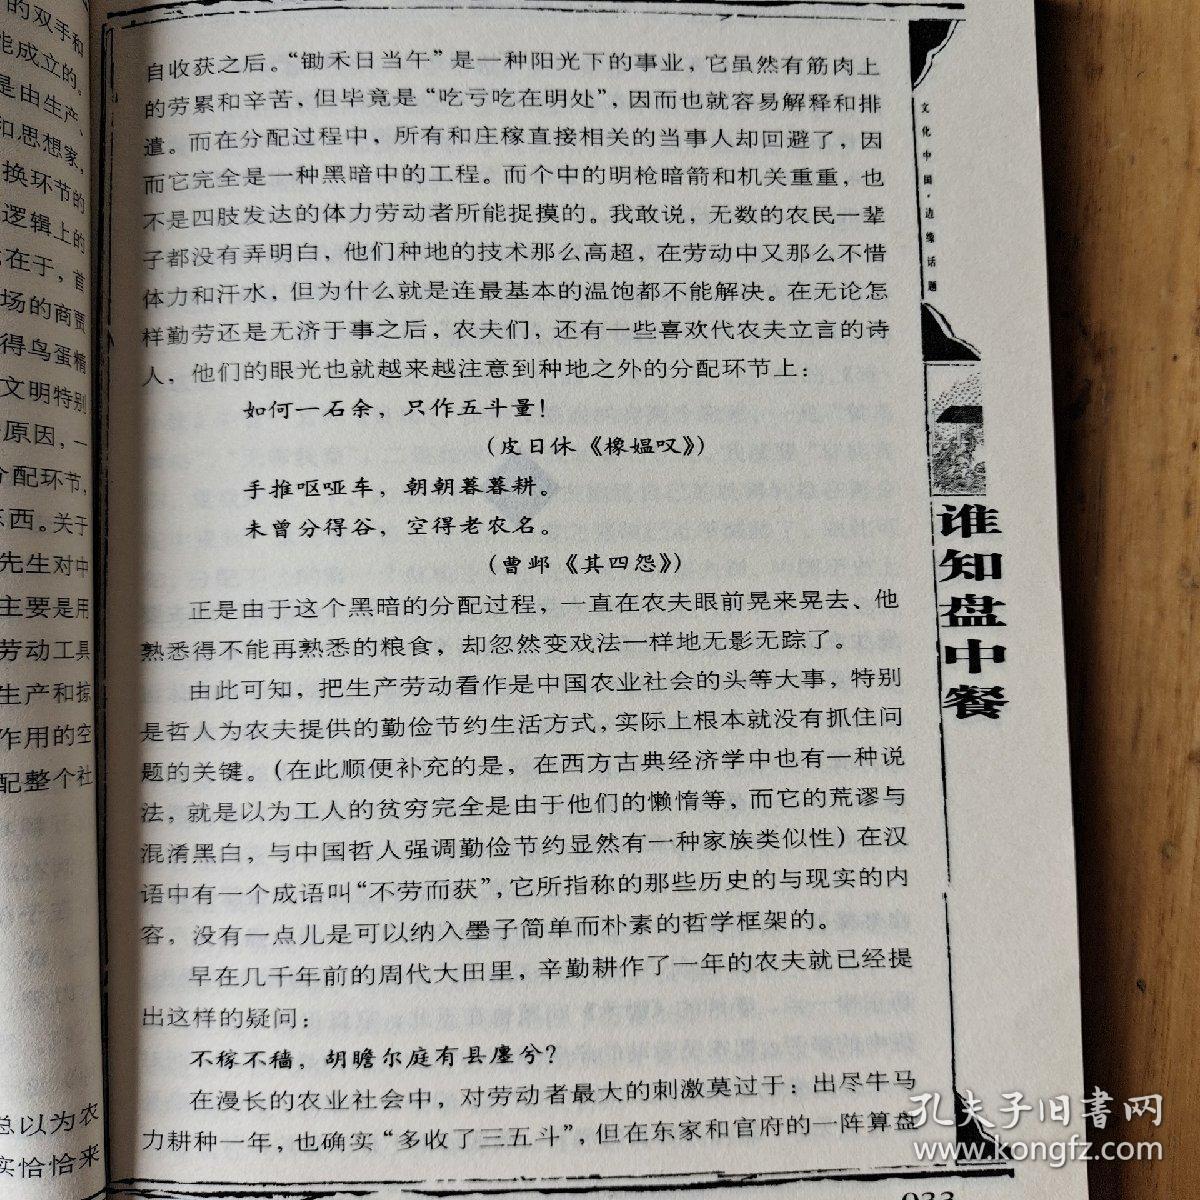 的双手和
能成立的。
是由生产、
和思想家，
换环节的
逻辑上的
在于，首
场的商贾
得鸟蛋精
文明特别
原因，一
分配环节，
东西。关于
先生对中
主要是用
劳动工具
生产和掠
作用的空
配整个社
总以为农
实恰恰来
自收获之后。“锄禾日当午”是一种阳光下的事业，它虽然有筋肉上
的劳累和辛苦，但毕竟是“吃亏吃在明处”，因而也就容易解释和排
遣。而在分配过程中，所有和庄稼直接相关的当事人却回避了，因
而它完全是一种黑暗中的工程。而个中的明枪暗箭和机关重重，也
不是四肢发达的体力劳动者所能捉摸的。我敢说，无数的农民一辈
子都没有弄明白，他们种地的技术那么高超，在劳动中又那么不惜
体力和汗水，但为什么就是连最基本的温饱都不能解决。在无论怎
样勤劳还是无济于事之后，农夫们，还有一些喜欢代农夫立言的诗
人，他们的眼光也就越来越注意到种地之外的分配环节上：
如何一石余，只作五斗量！
（皮日休《橡媪叹》）
手推呕哑车，朝朝暮暮耕。
未曾分得谷，空得老农名。
（曹邺《其四怨》）
正是由于这个黑暗的分配过程，一直在农夫眼前晃来晃去、他
熟悉得不能再熟悉的粮食，却忽然变戏法一样地无影无踪了。
由此可知，把生产劳动看作是中国农业社会的头等大事，特别
是哲人为农夫提供的勤俭节约生活方式，实际上根本就没有抓住问
题的关键。（在此顺便补充的是，在西方古典经济学中也有一种说
法，就是以为工人的贫穷完全是由于他们的懒惰等，而它的荒谬与
混淆黑白，与中国哲人强调勤俭节约显然有一种家族类似性）在汉
语中有一个成语叫“不劳而获”，它所指称的那些历史的与现实的内
容，没有一点儿是可以纳入墨子简单而朴素的哲学框架的。
早在几千年前的周代大田里，辛勤耕作了一年的农夫就已经提
出这样的疑问：
不稼不穑，胡瞻尔庭有县廛兮？
在漫长的农业社会中，对劳动者最大的刺激莫过于：出尽牛马
力耕种一年，也确实“多收了三五斗”，但在东家和官府的一阵算盘
文化中国·边缘话题
谁知盘中餐
033
孔夫子旧书网
www.kongfz.com